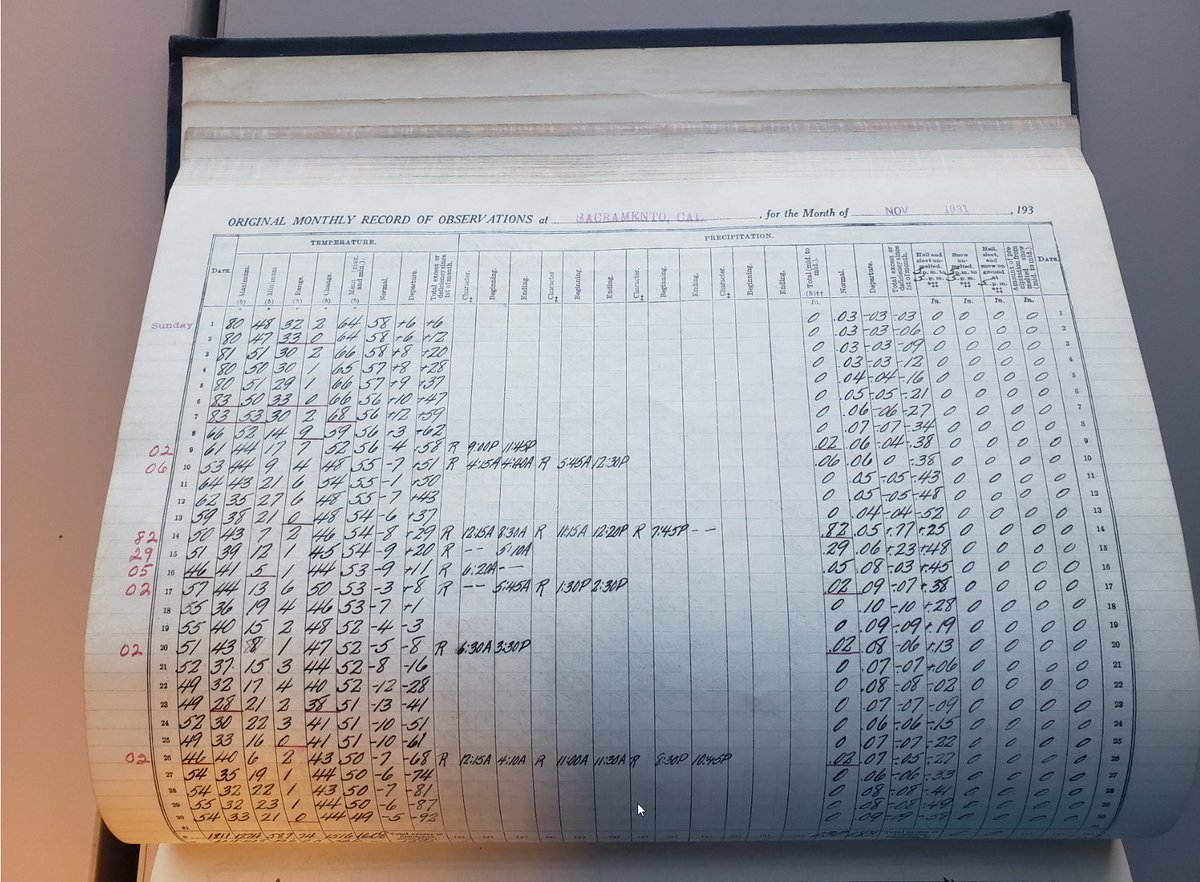 ORIGINAL MONTHLY RECORD OF OBSERVATIONS at SACRAMENTO, CAL. , for the Month of NOV 1931 , 193
TEMPERATURE. PRECIPITATION.
DATE. Maximum. Minimum. Range. Change. Mean (max. and min.). Normal. Departure. Total excess or deficiency since 1st of month. Character. Beginning. Ending. Character. Beginning. Ending. Character. Beginning. Ending. Character. Beginning. Ending. Total (mid. to mid.). Normal. Departure. Total excess or deficiency since 1st of month. Hail and sleet unmelted. Snow unmelted. Hail, sleet, and snow on ground DATE.
In. In. In. In. In.
Sunday 1 80 48 32 2 64 58 +6 +6 0 .03 -.03 -.03 0 0 0 0 1
2 80 47 33 0 64 58 +6 +12 0 .03 -.03 -.06 0 0 0 0 2
3 81 51 30 2 66 58 +8 +20 0 .03 -.03 -.09 0 0 0 0 3
4 80 50 30 1 65 57 +8 +28 0 .03 -.03 -.12 0 0 0 0 4
5 80 51 29 1 66 57 +9 +37 0 .04 -.04 -.16 0 0 0 0 5
6 83 50 33 0 66 56 +10 +47 0 .05 -.05 -.21 0 0 0 0 6
7 83 53 30 2 68 56 +12 +59 0 .06 -.06 -.27 0 0 0 0 7
8 66 52 14 9 59 56 +3 +62 0 .07 -.07 -.34 0 0 0 0 8
02 9 61 44 17 7 52 56 -4 +58 R 9:00P 11:45P .02 .06 -.04 -.38 0 0 0 0 9
06 10 53 44 9 4 48 55 -7 +51 R 4:15A 4:40A R 5:45A 12:30P .06 .06 0 -.38 0 0 0 0 10
11 64 43 21 6 54 55 -1 +50 0 .05 -.05 -.43 0 0 0 0 11
12 62 35 27 6 48 55 -7 +43 0 .05 -.05 -.48 0 0 0 0 12
13 59 38 21 0 48 54 -6 +37 0 .04 -.04 -.52 0 0 0 0 13
.82 14 50 43 7 2 46 54 -8 +29 R 12:15A 8:30A R 11:15A 12:20P R 7:45P -- .82 .05 +.77 +.25 0 0 0 0 14
29 15 51 39 12 1 45 54 -9 +20 R -- 5:10A .29 .06 +.23 +.48 0 0 0 0 15
05 16 46 41 5 1 44 53 -9 +11 R 6:20A -- .05 .08 -.03 +.45 0 0 0 0 16
02 17 57 44 13 6 50 53 -3 +8 R -- 5:45A R 1:30P 2:30P .02 .09 -.07 +.38 0 0 0 0 17
18 55 36 19 4 46 53 -7 +1 0 .10 -.10 +.28 0 0 0 0 18
19 55 40 15 2 48 52 -4 -3 0 .09 -.09 +.19 0 0 0 0 19
02 20 51 43 8 1 47 52 -5 -8 R 6:30A 3:30P .02 .08 -.06 +.13 0 0 0 0 20
21 52 37 15 3 44 52 -8 -16 0 .07 -.07 +.06 0 0 0 0 21
22 49 32 17 4 40 52 -12 -28 0 .08 -.08 -.02 0 0 0 0 22
23 49 28 21 2 38 51 -13 -41 0 .07 -.07 -.09 0 0 0 0 23
24 52 30 22 3 41 51 -10 -51 0 .06 -.06 -.15 0 0 0 0 24
25 49 33 16 0 41 51 -10 -61 0 .07 -.07 -.22 0 0 0 0 25
02 26 46 40 6 2 43 50 -7 -68 R 12:15A 4:10A R 11:00A 11:30A R 8:30P 10:45P .02 .07 -.05 -.27 0 0 0 0 26
27 54 35 19 1 44 50 -6 -74 0 .06 -.06 -.33 0 0 0 0 27
28 54 32 22 1 43 50 -7 -81 0 .08 -.08 -.41 0 0 0 0 28
29 55 32 23 1 44 50 -6 -87 0 .08 -.08 -.49 0 0 0 0 29
30 54 33 21 0 44 49 -5 -92 0 .09 -.09 0 0 0 0
31